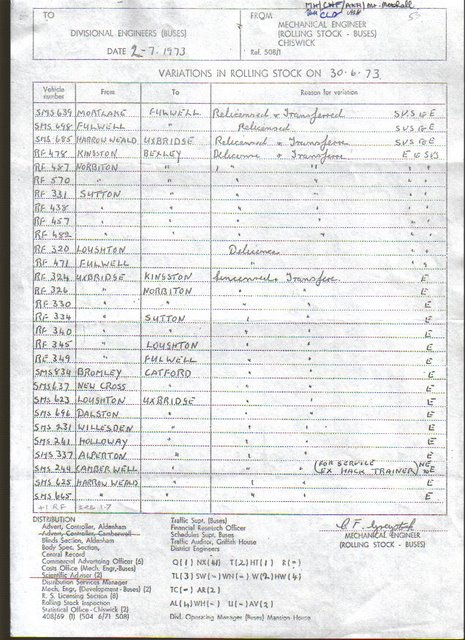 MH/CHF/AKH/Mr. Marshall
TO
DIVISIONAL ENGINEERS (BUSES)
DATE 2-7.1973
FROM
MECHANICAL ENGINEER
(ROLLING STOCK - BUSES)
CHISWICK
Ref. 508/1
VARIATIONS IN ROLLING STOCK ON 30.6.73
Vehicle number From To Reason for variation
SMS 639 MORTLAKE FULWELL Relicensed & Transferred SVS to E
SMS 698 FULWELL " Relicensed SVS to E
SMS 685 HARROW WEALD UXBRIDGE Relicensed & Transferred SVS to E
RF 478 KINGSTON BEXLEY Delicence & Transfere E to SVS
RF 487 NORBITON " " " " "
RF 570 " " " " " "
RF 331 SUTTON " " " " "
RF 438 " " " " " "
RF 457 " " " " " "
RF 482 " " " " " "
RF 320 LOUGHTON Delicence " "
RF 471 FULWELL " " "
RF 324 UXBRIDGE KINGSTON Licensed & Transfere E
RF 326 " NORBITON " " E
RF 330 " " " " E
RF 334 " SUTTON " " E
RF 340 " " " " E
RF 345 " LOUGHTON " " E
RF 349 " FULWELL " " E
SMS 834 BROMLEY CATFORD " " E
SMS 637 NEW CROSS " " " E
SMS 623 LOUGHTON UXBRIDGE " " E
SMS 696 DALSTON " " " E
SMS 231 WILLESDEN " " " E
SMS 241 HOLLOWAY " " " E
SMS 337 ALPERTON " " " E
SMS 244 CAMBERWELL " " (FOR SERVICE EX HACK TRAINER) NE to E
SMS 628 HARROW WEALD " " " E
SMS 665 " " " " E
+1 RF see 1.7
DISTRIBUTION
Advert. Controller, Aldenham
Advert. Controller, Camberwell
Blinds Section, Aldenham
Body Spec. Section,
Central Record
Commercial Advertising Officer (6)
Costs Office (Mech. Eng.-Buses)
Scientific Adviser (2)
Distribution Services Manager
Mech. Engr. (Development - Buses) (2)
R. S. Licensing Section (8)
Rolling Stock Inspection
Statistical Office - Chiswick (2)
408/69 (1) (504 6/71 508)
Traffic Supt. (Buses)
Financial Research Officer
Schedules Supt. Buses
Traffic Auditor, Griffith House
District Engineers
TC(-) AR(2)
Divl. Operating Manager (Buses) Mansion House
MECHANICAL ENGINEER
(ROLLING STOCK - BUSES)